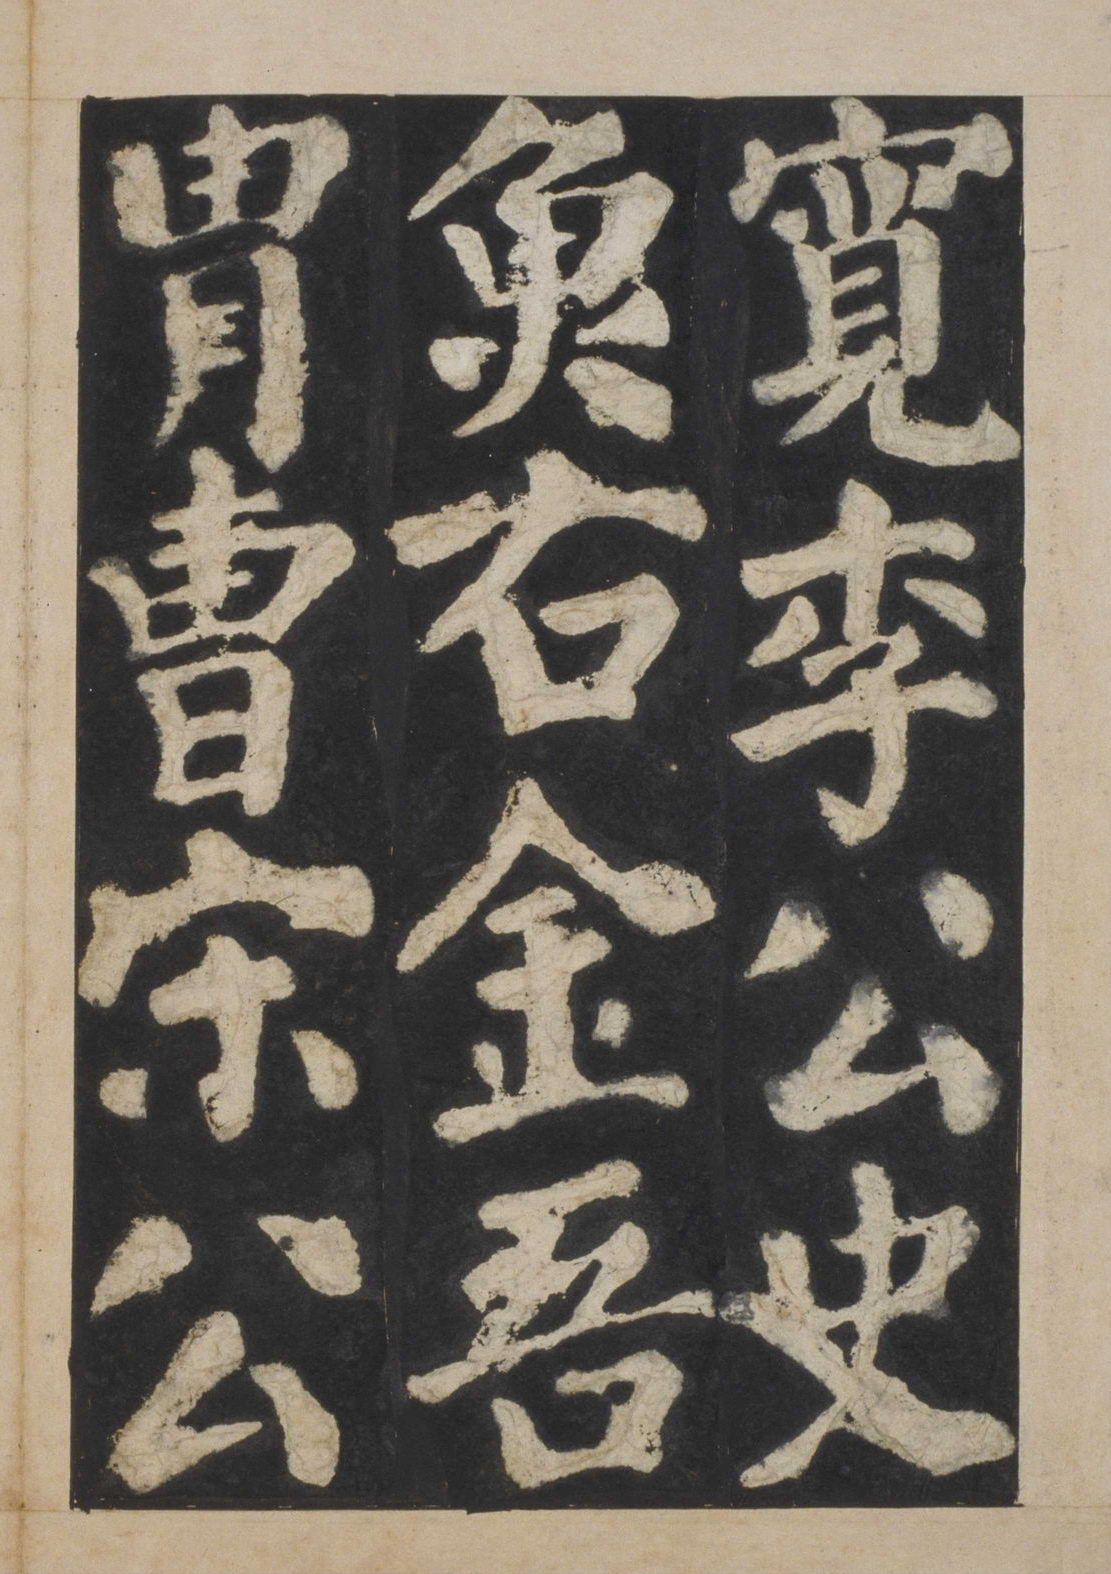 寬李公史
魚右金吾
胄曹宋公